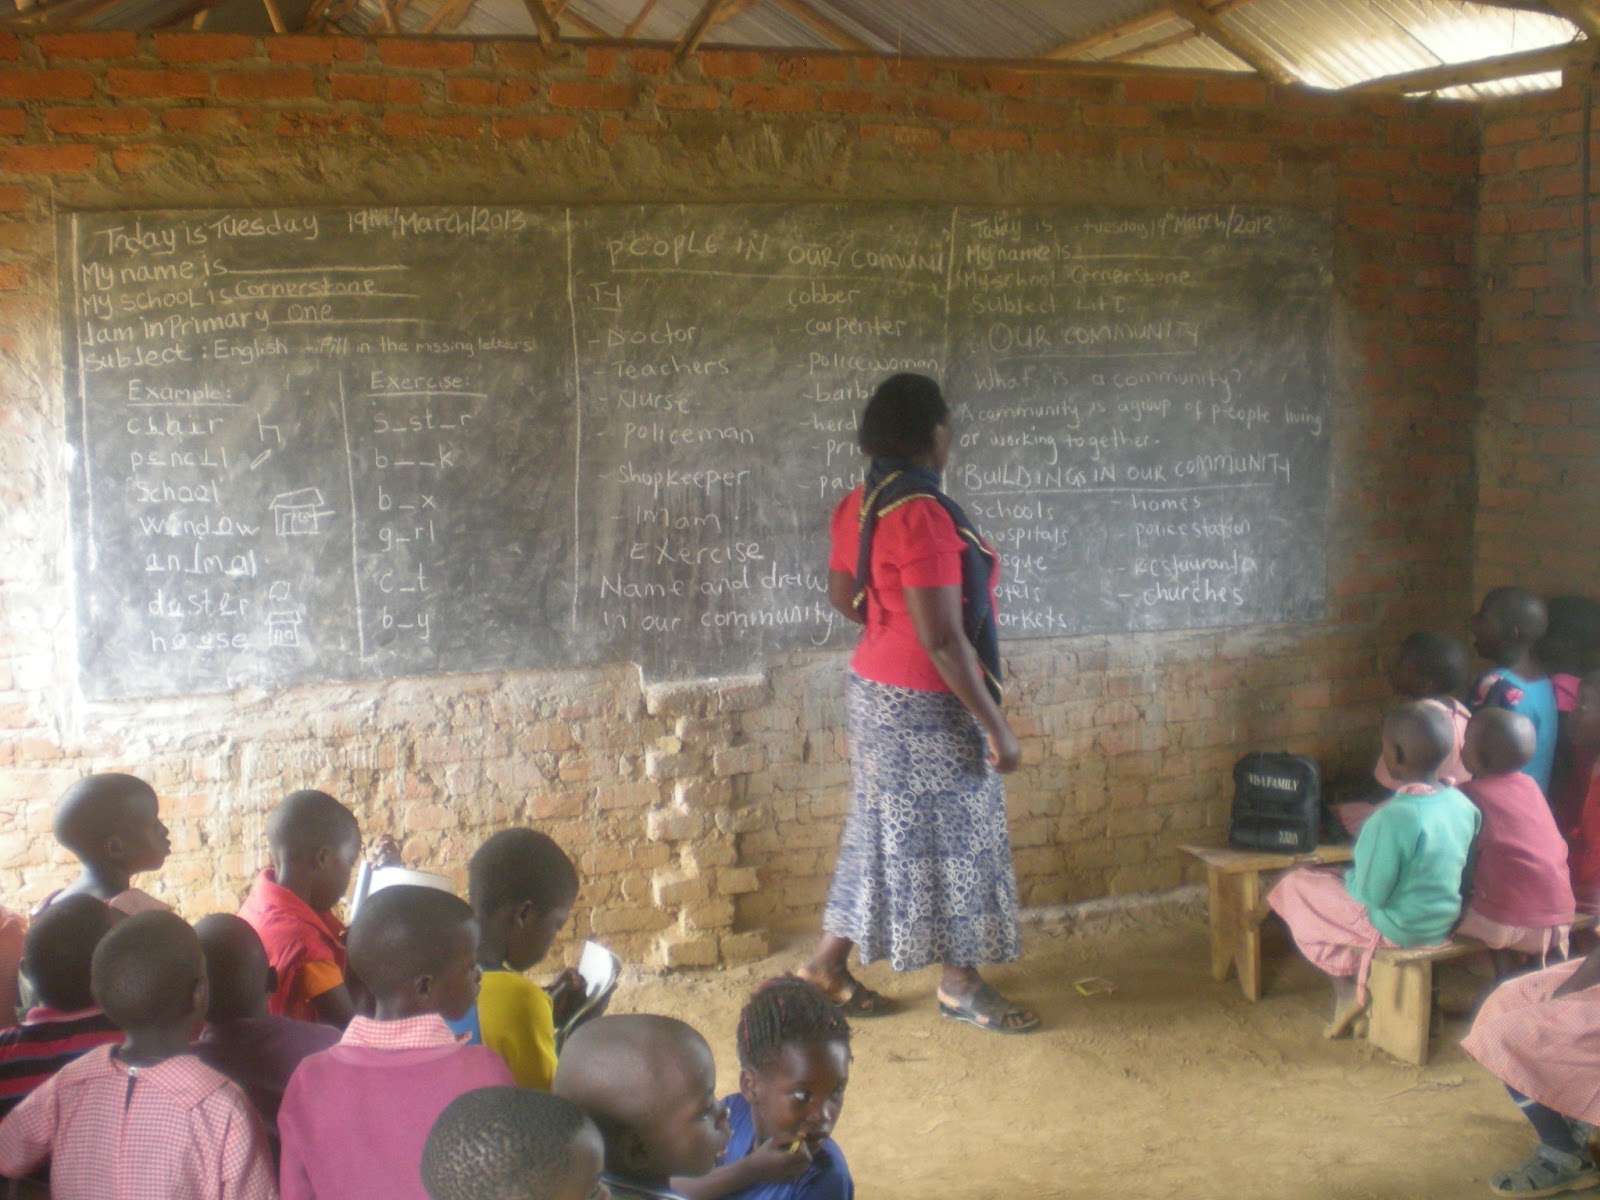 Today is Tuesday 19th/March/2013
My name is
My school is Cornerstone
I am in Primary One
Subject: English - Fill in the missing letters
Example:
chair
pencil
School
window
animal
duster
house
Exercise:
s_st_r
b__k
b_x
g_rl
c_t
b_y
PEOPLE IN OUR COMUNI
TY
- Doctor
- Teachers
- Nurse
- policeman
- shopkeeper
- Imam
cobber
- carpenter
policewoman
- barb
- herd
pri
- past
Exercise
Name and draw
in our community
Today is tuesday 19th March/2013
My name is
My school Cornerstone
Subject
OUR COMMUNITY
What is a community?
A community is a group of people living
or working together.
BUILDINGS IN OUR COMMUNITY
schools
hospitals
sque
otels
arkets
- homes
- police station
- churches
VISA FAMILY